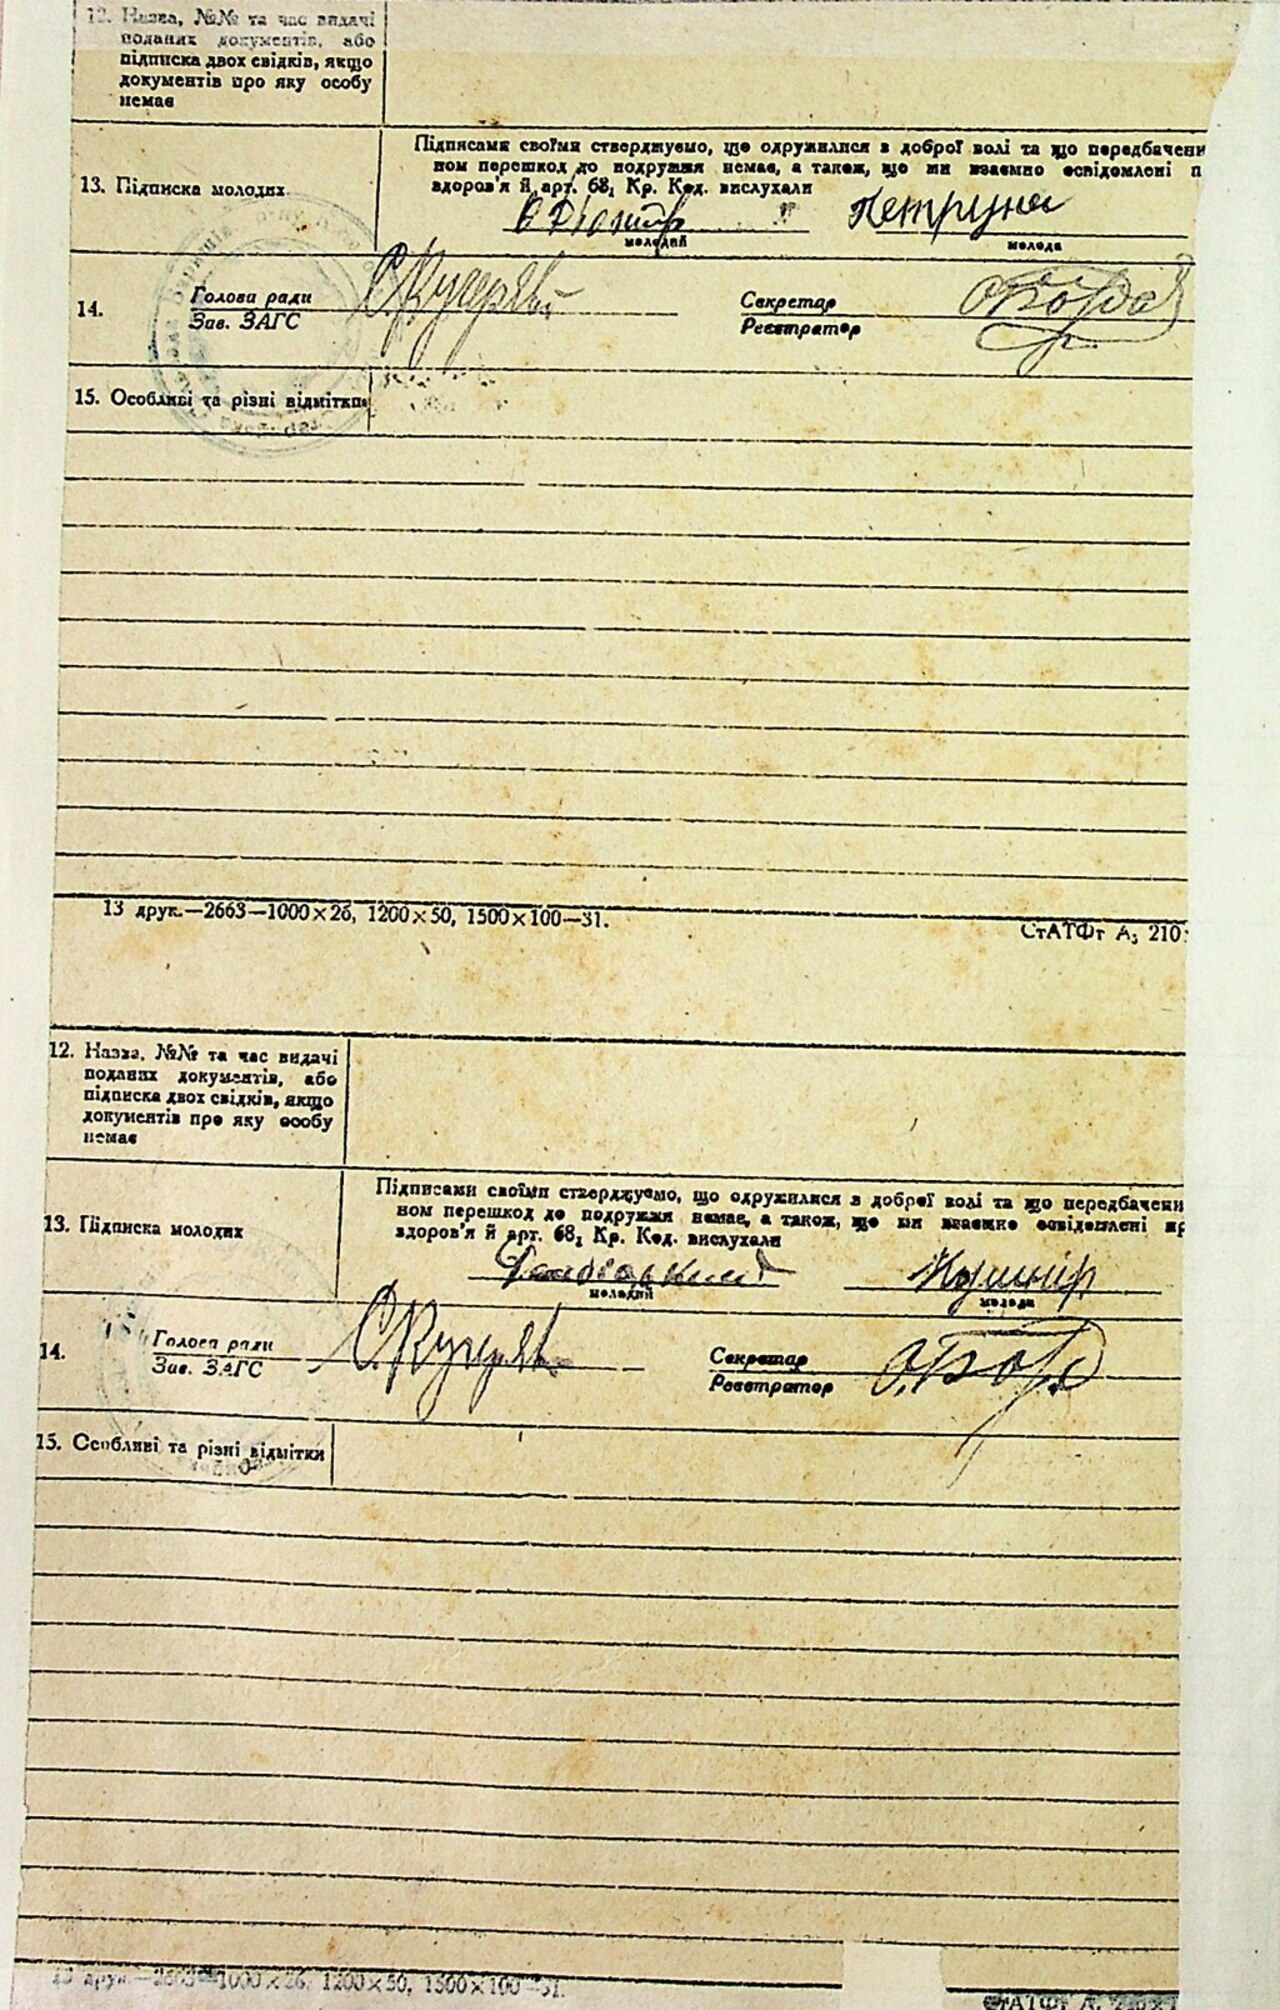 12. Назва, №№ та час видачі
поданих документів, або
підписка двох свідків, якщо
документів про яку особу
немає
Підписами своїми стверджуємо, що одружилися з доброї волі та що передбачени
ном перешкод до подружжя немає, а також, що ми взаємно освідомлені п
здоров'я й арт. 68₁ Кр. Код. вислухали
13. Підписка молодих
Петруня
молодий
молода
14.
Голова ради
Зав. ЗАГС
С. Кучерявий
Секретар
Реєстратор
15. Особливі та різні відмітки
13 друк.—2663—1000×26, 1200×50, 1500×100—31.
СтАТФт А₅ 210
12. Назва, №№ та час видачі
поданих документів, або
підписка двох свідків, якщо
документів про яку особу
немає
Підписами своїми стверджуємо, що одружилися з доброї волі та що передбачени
ном перешкод до подружжя немає, а також, що ми взаємно освідомлені пр
здоров'я й арт. 68₁ Кр. Код. вислухали
13. Підписка молодих
Кушнір
молодий
молода
14.
Голова ради
Зав. ЗАГС
С. Кучеряв
Секретар
Реєстратор
15. Особливі та різні відмітки
13 друк.—2663—1000×26, 1200×50, 1500×100—31.
СтАТФт А₅